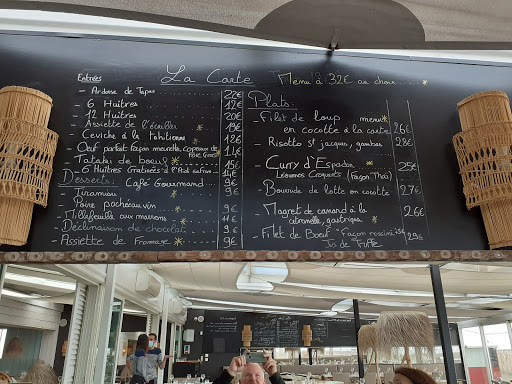 La Carte Menu à 32€ au choix
Entrées
- Ardoise de Tapas 22€
- 6 Huîtres 12€
12 Huîtres 20€
- Assiette de l'écailler 19€
- Ceviche à la Tahitienne 12€
- Oeuf parfait façon meurette, copeaux de Foie Gras 14€
- Tataki de boeuf 15€
- 6 Huîtres Gratinées 14€
Desserts
Café Gourmand 9€
- Tiramisu 9€
- Poire pochée au vin 9€
- Millefeuille aux marrons
- Déclinaison de chocolat 9€
- Assiette de fromage 9€
Plats
- Filet de loup menu
en cocotte à la carte 26€
- Risotto St jacques, gambas 28€
- Curry d'Espadon 25€
Légumes Croquants (Façon Thaï)
- Bourride de lotte en cocotte 27€
- Magret de canard à la 26€
citronelle, gratiné
- Filet de Boeuf "Façon rossini"
Jus de Truffe